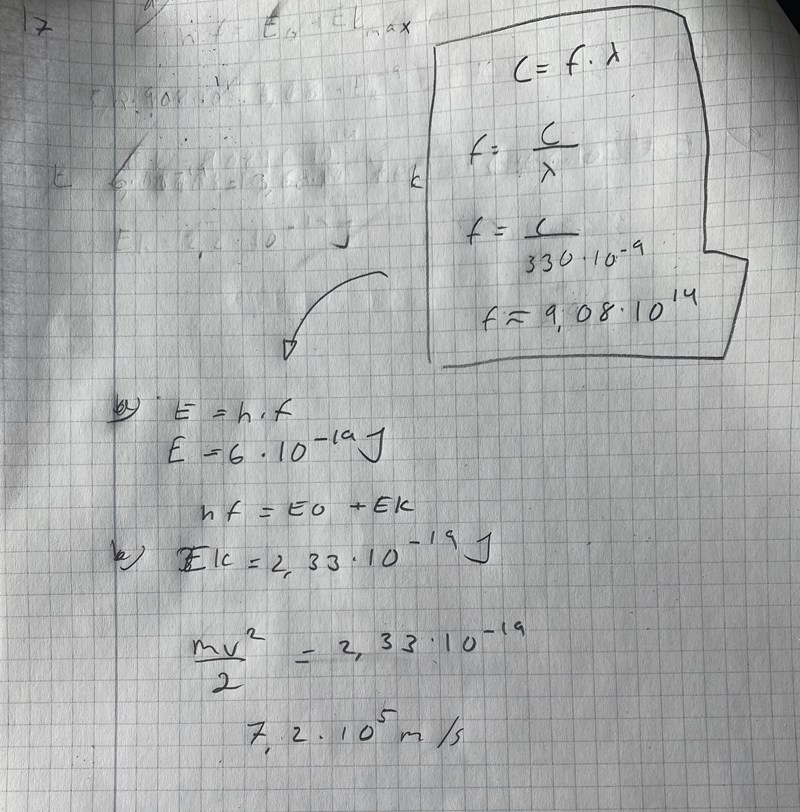 17
C = f · λ
f = C/λ
f = C/330·10⁻⁹
f ≈ 9,08·10¹⁴
b) E = h·f
E = 6 · 10⁻¹⁹ J
hf = E0 + EK
EK = 2,33·10⁻¹⁹ J
mv²/2 = 2,33·10⁻¹⁹
7,2·10⁵ m/s